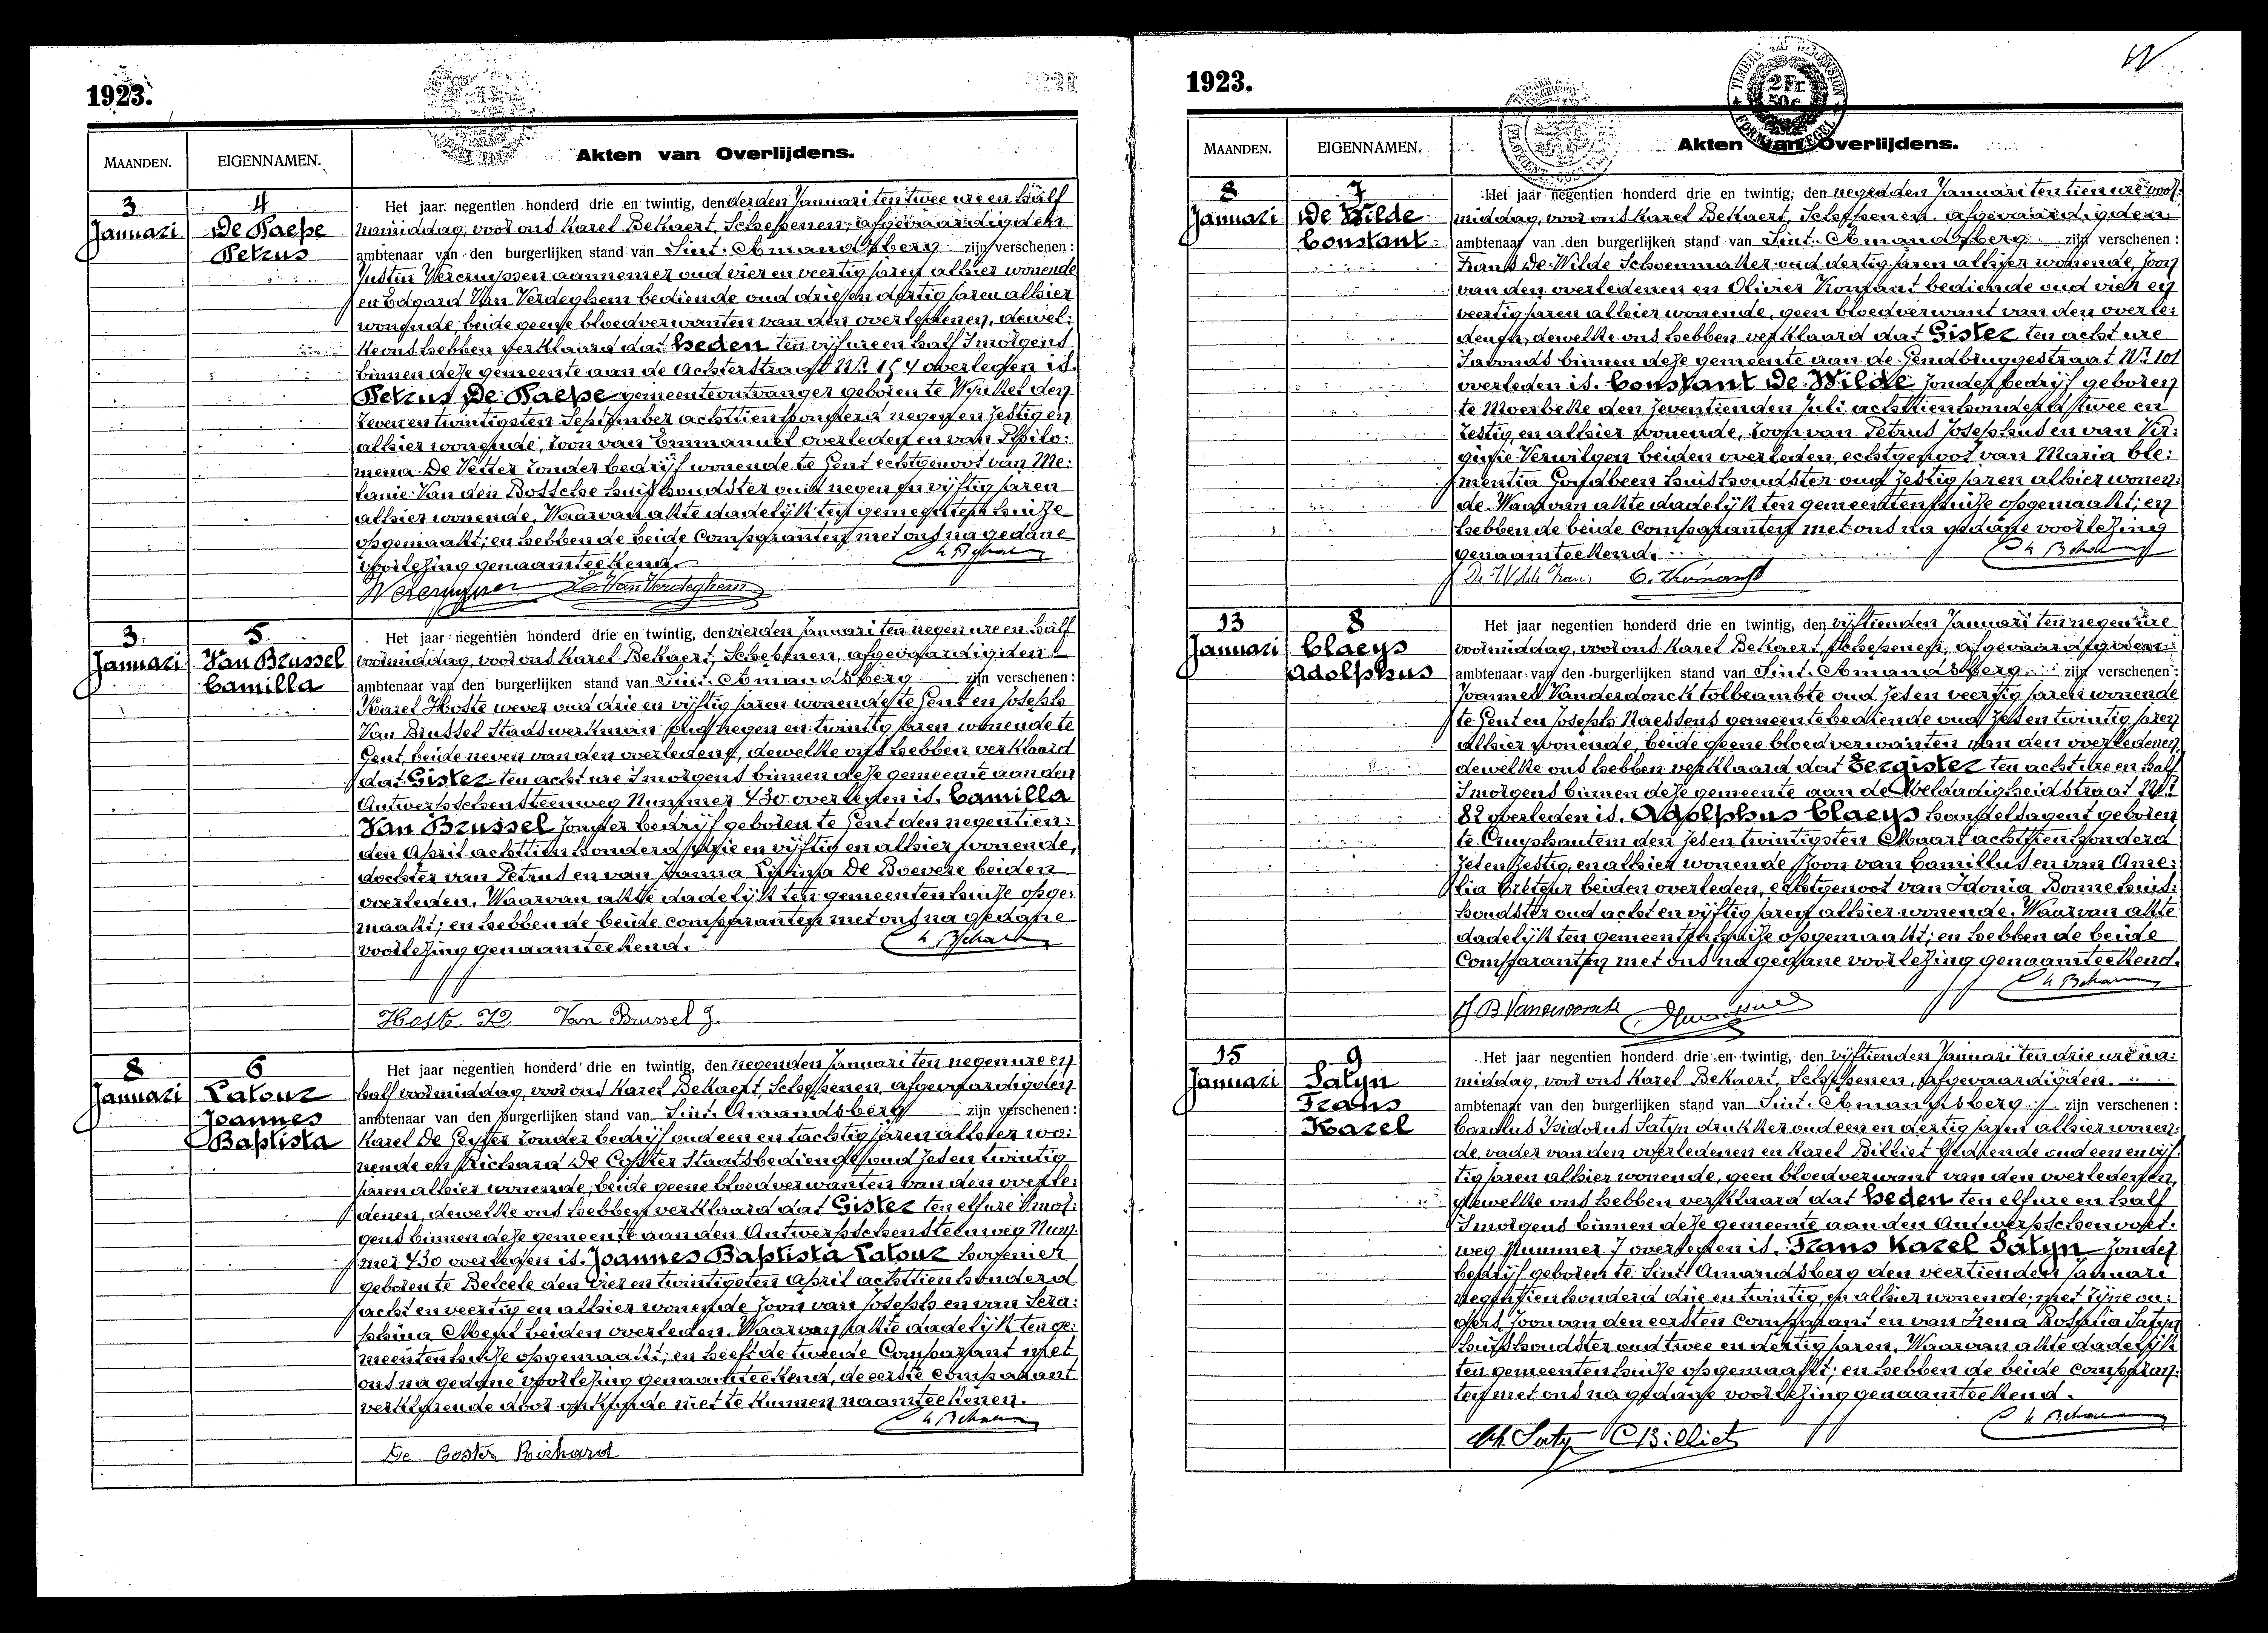 1923.
MAANDEN. EIGENNAMEN. Akten van Overlijdens.
3 Januari
4 De Paepe Petrus
Het jaar negentien honderd drie en twintig, den derden Januari ten twee ure en half
namiddag, voor ons Karel Bekaert, Schepenen, afgevaardigden
ambtenaar van den burgerlijken stand van Sint-Amandsberg zijn verschenen:
Justin Vereruyssen aannemer oud vier en veertig jaren alhier wonende
en Edgard Van Verdeghem bediende oud drie en dertig jaren alhier
wonende, beide geene bloedverwanten van den overledenen, dewel:
ke ons hebben verklaard dat heden ten vijf ure en half 's morgens
binnen deze gemeente aan de Achterstraat Nr. 154 overleden is.
Petrus De Paepe gemeenteontvanger geboren te Wynkel den
zeven en twintigsten September achttien honderd negen en zestig en
alhier wonende, zoon van Emmanuel overleden en van Philo:
mena De Vetter zonder bedrijf wonende te Gent echtgenoot van Me:
lanie Van den Bossche huishoudster oud negen en vijftig jaren
alhier wonende. Waarvan akte dadelijk ten gemeentenhuize
opgemaakt; en hebben de beide comparanten met ons na gedane
voorlezing genaamteekend.
E. Van Verdeghem
3. Januari
5. Van Brussel Camilla
Het jaar negentien honderd drie en twintig, den vierden Januari ten negen ure en half
voormiddag, voor ons Karel Bekaert, Schepenen, afgevaardigden
ambtenaar van den burgerlijken stand van Sint-Amandsberg zijn verschenen:
Karel Hoste wever oud drie en vijftig jaren wonende te Gent en Joseph
Van Brussel Staatswerkman oud negen en twintig jaren wonende te
Gent, beide neven van den overledene, dewelke ons hebben verklaard
dat Gister ten acht ure 's morgens binnen deze gemeente aan den
Antwerpschensteenweg Nummer 430 overleden is. Camilla
Van Brussel zonder bedrijf geboren te Gent den negentien:
den April achttien honderd drie en vijftig en alhier wonende,
dochter van Petrus en van Joanna Livina De Boevere beiden
overleden. Waarvan akte dadelijk ten gemeentenhuize opge:
maakt; en hebben de beide comparanten met ons na gedane
voorlezing genaamteekend.
Hoste Van Brussel J.
8 Januari
6 Latour Joannes Baptista
Het jaar negentien honderd drie en twintig, den negenden Januari ten negen ure en
half voormiddag, voor ons Karel Bekaert, Schepenen, afgevaardigden
ambtenaar van den burgerlijken stand van Sint Amandsberg zijn verschenen:
Karel De Geyter zonder bedrijf oud een en tachtig jaren alhier wo:
nende en Richard De Coster Staatsbediende oud zes en twintig
jaren alhier wonende, beide geene bloedverwanten van den overle:
denen, dewelke ons hebben verklaard dat Gister ten elf ure 's mor:
gens binnen deze gemeente aan den Antwerpschensteenweg Num:
mer 430 overleden is. Joannes Baptista Latour hovenier
geboren te Belcele den vier en twintigsten April achttien honderd
acht en veertig en alhier wonende zoon van Joseph en van Sera:
phina beiden overleden. Waarvan akte dadelijk ten ge:
meentenhuize opgemaakt; en heeft de tweede Comparant met
ons na gedane voorlezing genaamteekend, de eerste comparant
verklarende door onkunde niet te kunnen naamteekenen.
De Coster Richard
1923.
MAANDEN. EIGENNAMEN. Akten van Overlijdens.
8 Januari
7 De Wilde Constant
Het jaar negentien honderd drie en twintig, den negenden Januari ten tien ure voor:
middag, voor ons Karel Bekaert, Schepenen, afgevaardigden
ambtenaar van den burgerlijken stand van Sint-Amandsberg zijn verschenen:
Frans De Wilde Schoenmaker oud dertig jaren alhier wonende zoon
van den overledenen en Olivier bediende oud vier en
veertig jaren alhier wonende, geen bloedverwant van den overle:
denen, dewelke ons hebben verklaard dat Gister ten acht ure
's avonds binnen deze gemeente aan de Gendbruggestraat Nr. 101
overleden is. Constant De Wilde zonder bedrijf geboren
te Moerbeke den zeventienden Juli achttien honderd twee en
zestig en alhier wonende, zoon van Petrus Josephus en van Vir:
ginie Verwilgen beiden overleden, echtgenoot van Maria Cle:
mentia huishoudster oud zestig jaren alhier wonen:
de. Waarvan akte dadelijk ten gemeentenhuize opgemaakt; en
hebben de beide comparanten met ons na gedane voorlezing
genaamteekend.
De Wilde Frans
13 Januari
8 Claeys Adolphus
Het jaar negentien honderd drie en twintig, den vijftienden Januari ten negen ure
voormiddag, voor ons Karel Bekaert, Schepenen, afgevaardigden
ambtenaar van den burgerlijken stand van Sint-Amandsberg zijn verschenen:
Joannes Vanderdonck tolbeambte oud zes en veertig jaren wonende
te Gent en Joseph Naessens gemeentebediende oud zes en twintig jaren
alhier wonende, beide geene bloedverwanten van den overledenen,
dewelke ons hebben verklaard dat Eergister ten acht ure en half
's morgens binnen deze gemeente aan de Weldadigheidstraat Nr.
82 overleden is. Adolphus Claeys handelsagent geboren
te Cruyshautem den zes en twintigsten Maart achttien honderd
zes en zestig, en alhier wonende zoon van Camillus en van Ame:
lia Créteur beiden overleden, echtgenoot van Idonia Bonne huis:
houdster oud acht en vijftig jaren alhier wonende. Waarvan akte
dadelijk ten gemeentenhuize opgemaakt; en hebben de beide
Comparanten met ons na gedane voorlezing genaamteekend.
15 Januari
9 Satyn Frans Karel
Het jaar negentien honderd drie en twintig, den vijftienden Januari ten drie ure na:
middag, voor ons Karel Bekaert, Schepenen, afgevaardigden
ambtenaar van den burgerlijken stand van Sint-Amandsberg zijn verschenen:
Carolus Isidorus Satyn drukker oud een en dertig jaren alhier wonen:
de, vader van den overledenen en Karel Billiet bediende oud een en vijf:
tig jaren alhier wonende, geen bloedverwant van den overledenen,
dewelke ons hebben verklaard dat heden ten elf ure en half
's morgens binnen deze gemeente aan den Antwerpschenvoet:
weg Nummer 7 overleden is. Frans Karel Satyn zonder
bedrijf geboren te Sint Amandsberg den veertienden Januari
negentien honderd drie en twintig, en alhier wonende, met zijne ou:
ders, zoon van den eersten Comparant en van Irena Rosalia Satyn
huishoudster oud twee en dertig jaren. Waarvan akte dadelijk
ten gemeentenhuize opgemaakt; en hebben de beide comparan:
ten met ons na gedane voorlezing genaamteekend.
Ch. Satyn C. Billiet